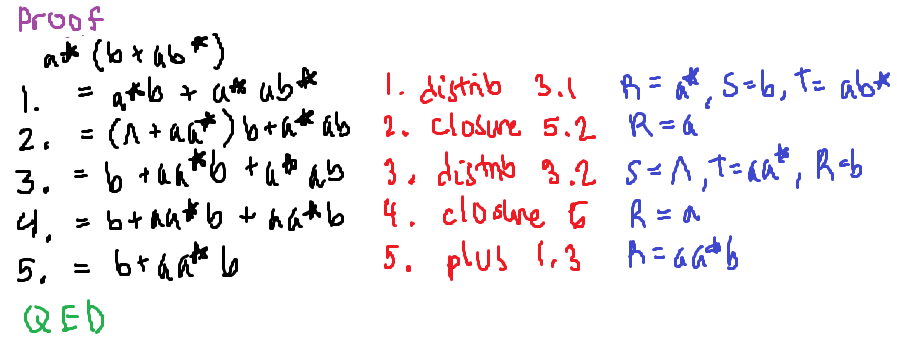 Proof
a* (b + ab*)
1. = a*b + a* ab* 1. distrib 3.1 R = a*, S=b, T= ab*
2. = (Λ + aa*) b + a* ab 2. closure 5.2 R = a
3. = b + aa*b + a* ab 3. distrib 3.2 S = Λ, T = aa*, R=b
4. = b + aa*b + aa*b 4. closure 6 R = a
5. = b + aa* b 5. plus 1.3 R = aa*b
QED